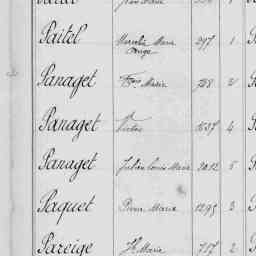 Paitel Marcelin Marie 297 1
Ange
Panaget Fçois Marie 788 2
Panaget Victor 1537 4
Panaget Julien Louis Marie 2012 5
Paquet Pierre Marie 1295 3
Pareige Jh Marie 717 2